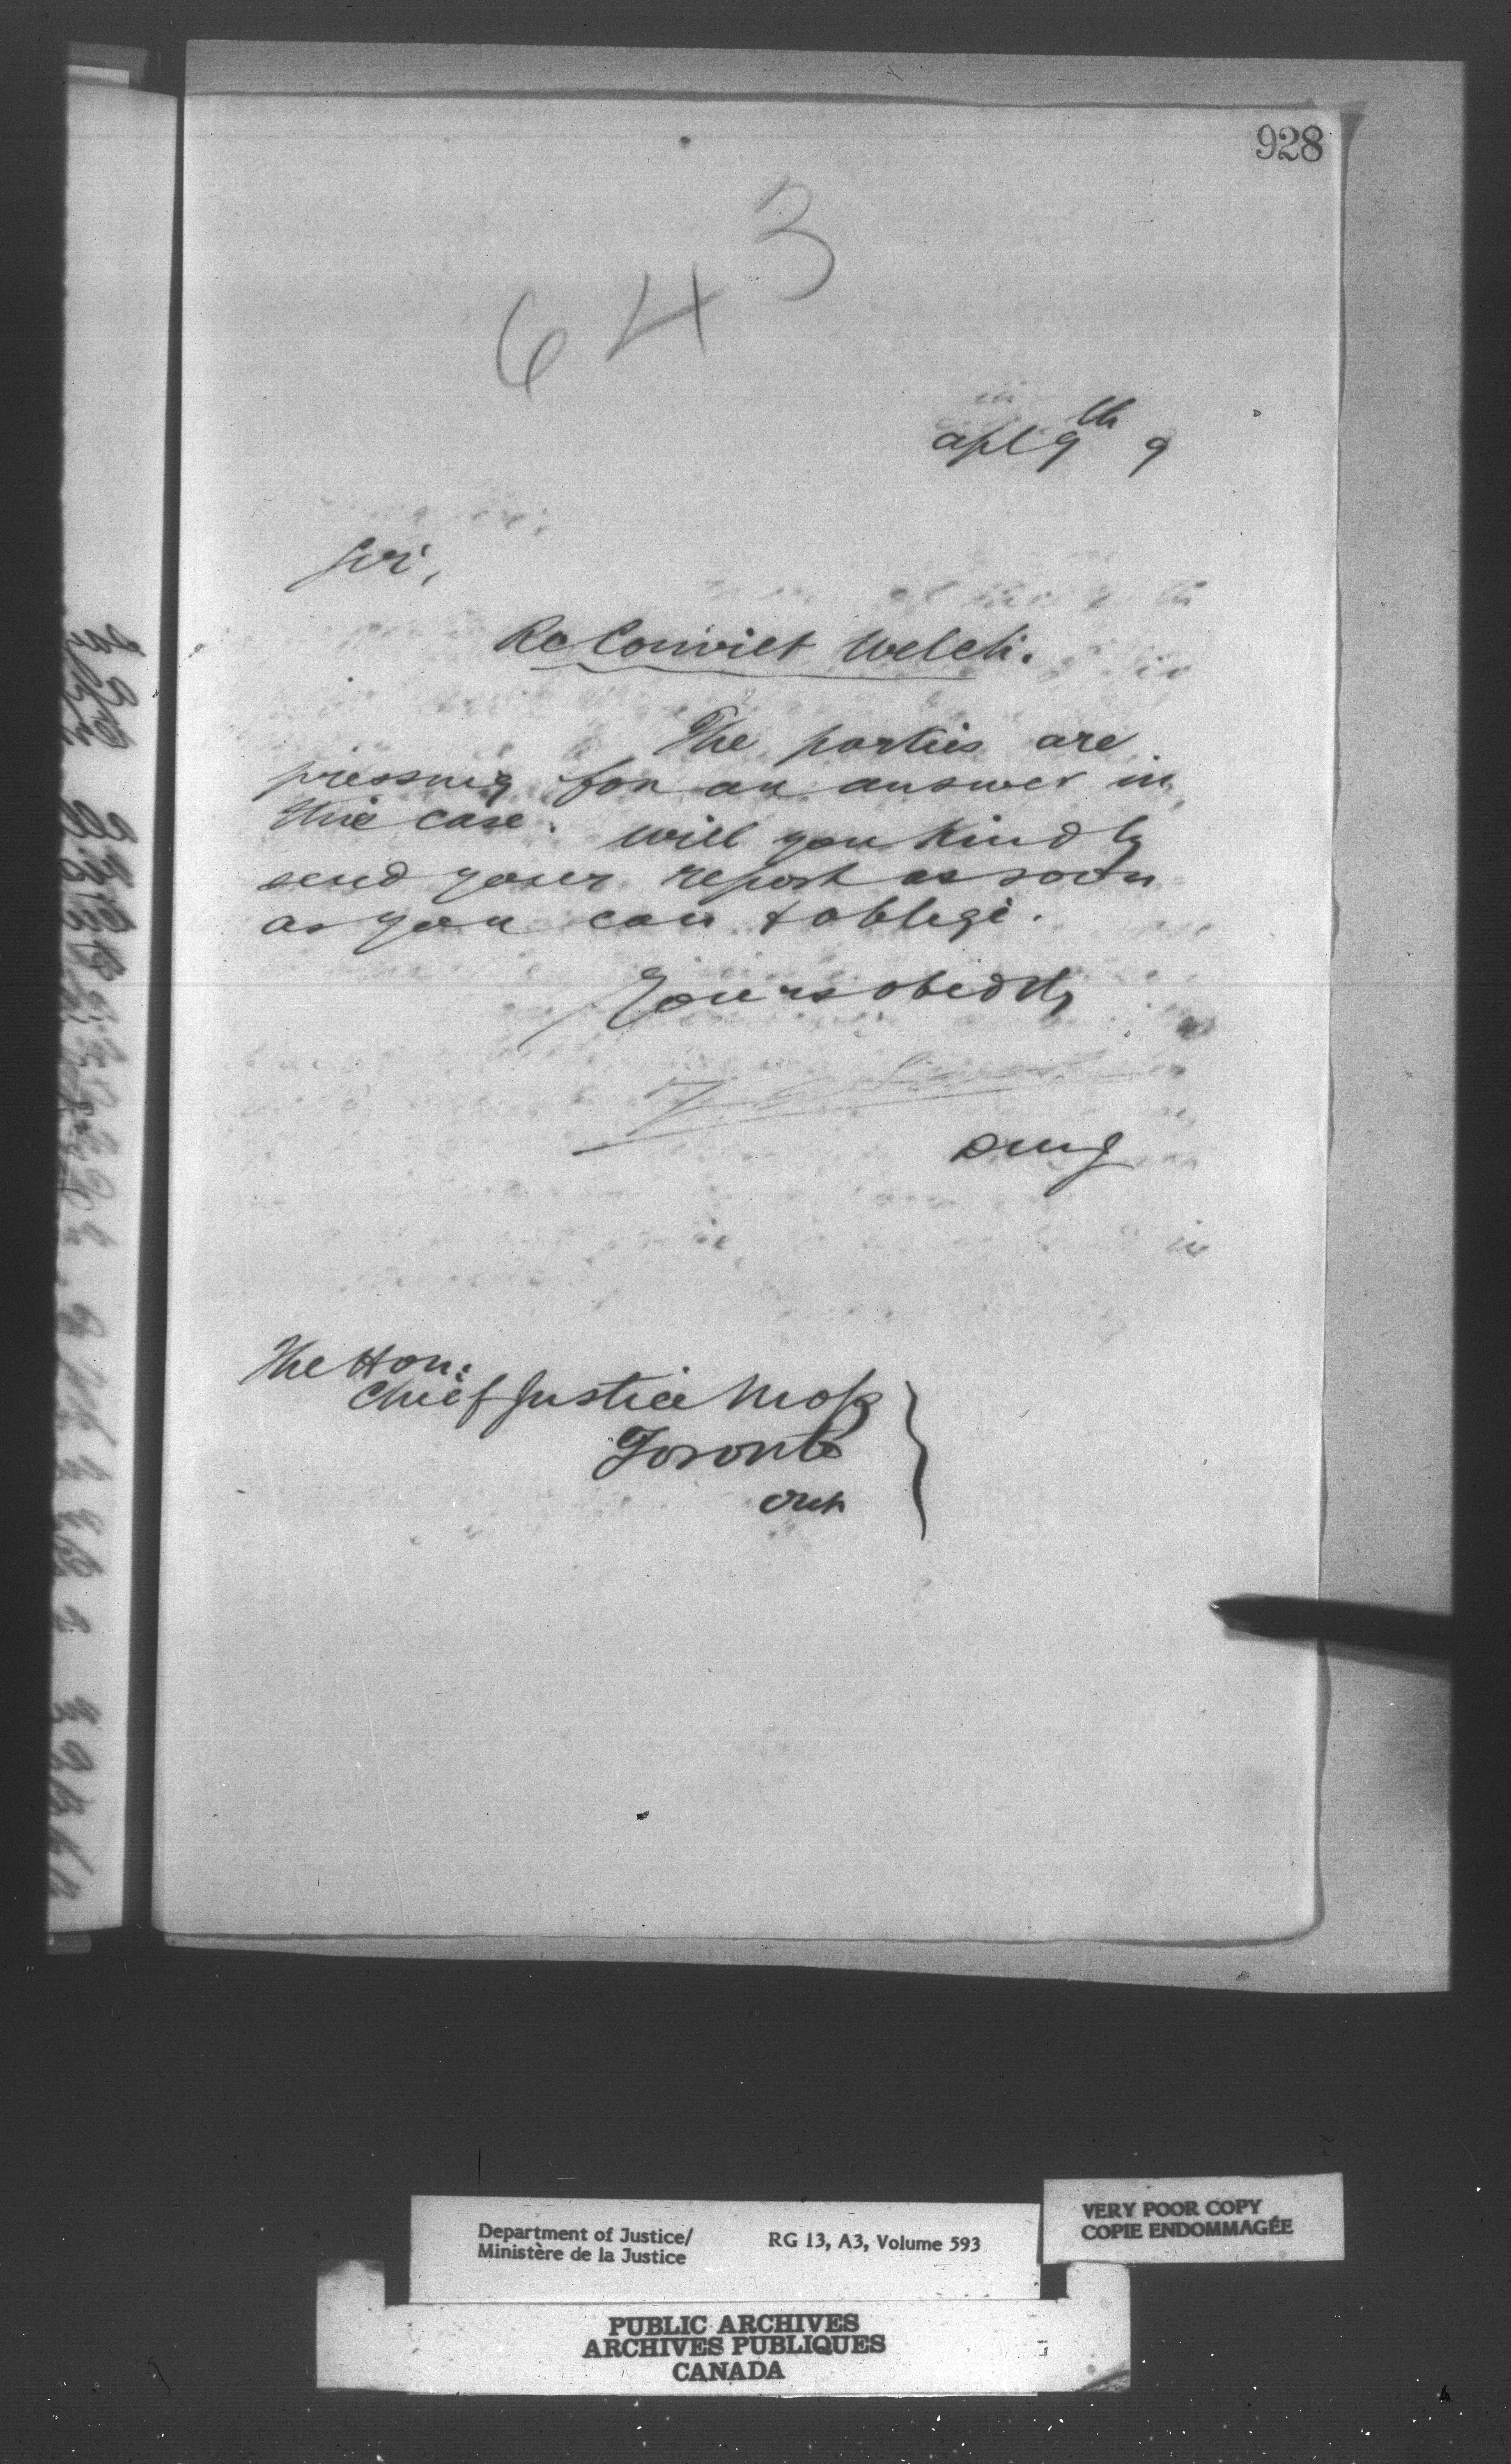 928
643
apl 9th 9
Sir,
Re Convict Welch.
The parties are
pressing for an answer in
this case. Will you kindly
send your report as soon
as you can & oblige.
Yours obedtly
DMJ
The Hon:
Chief Justice Moss
Toronto
Ont
Department of Justice/
Ministère de la Justice
RG 13, A3, Volume 593
VERY POOR COPY
COPIE ENDOMMAGÉE
PUBLIC ARCHIVES
ARCHIVES PUBLIQUES
CANADA